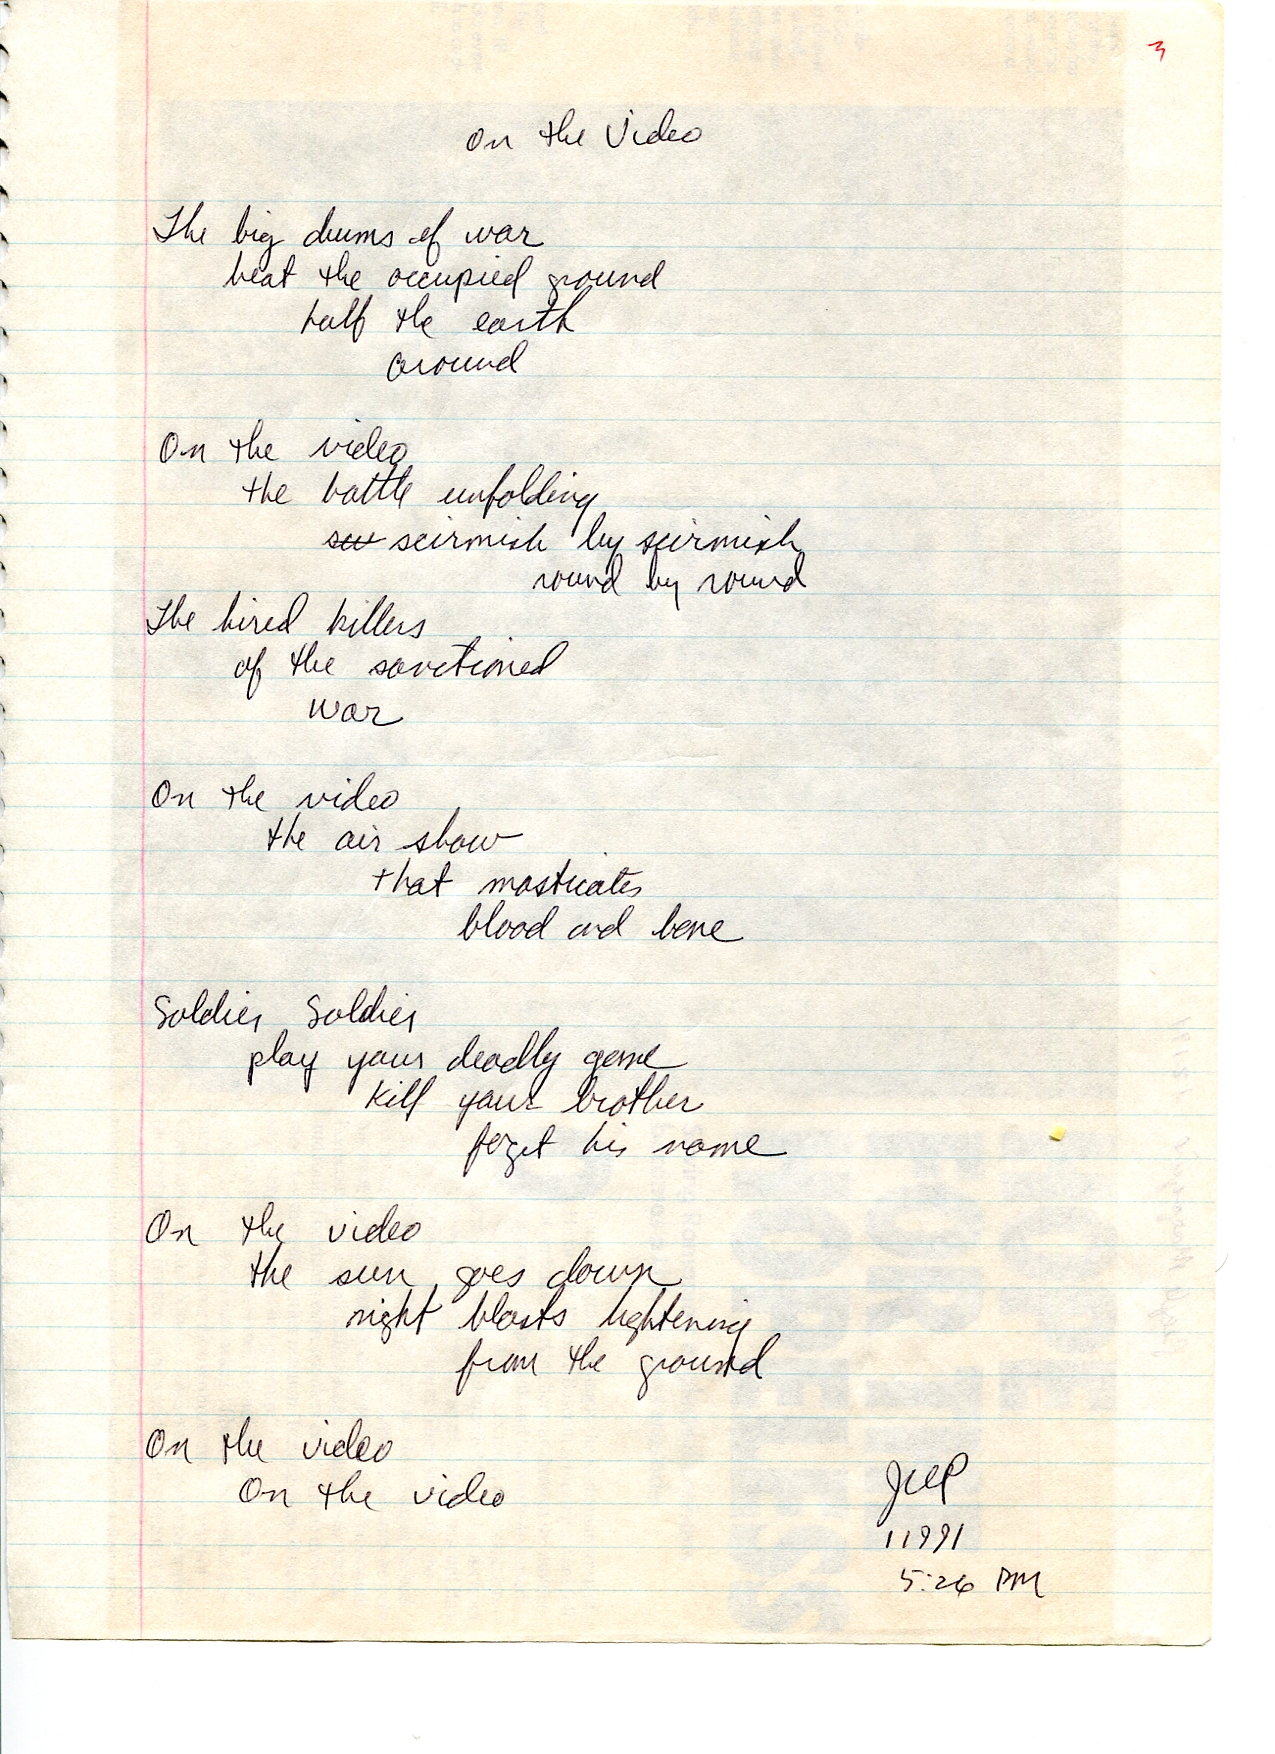 3
On the Video
The big drums of war
beat the occupied ground
half the earth
around
On the video
the battle unfolding
scirmish by scirmish
round by round
The hired killers
of the sanctioned
war
On the video
the air show
that masticates
blood and bone
Soldier, Soldier
play your deadly game
Kill your brother
forget his name
On the video
the sun goes down
night blasts lightening
from the ground
On the video
On the video
11991
5:26 PM